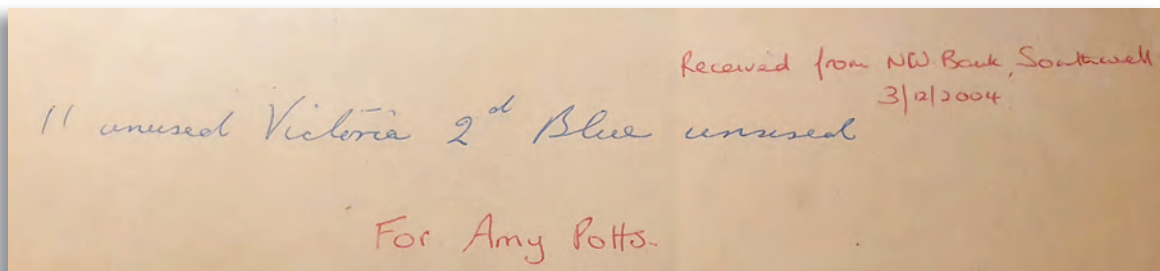 Received from NW Bank, Southwell
3/12/2004
11 unused Victoria 2d Blue unused
For Amy Potts.